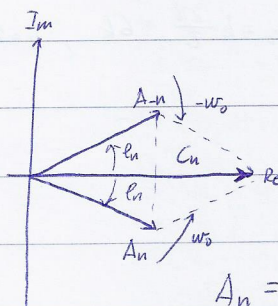 Im
A-n
-w₀
φn
Cn
Re
φn
An
w₀
An =